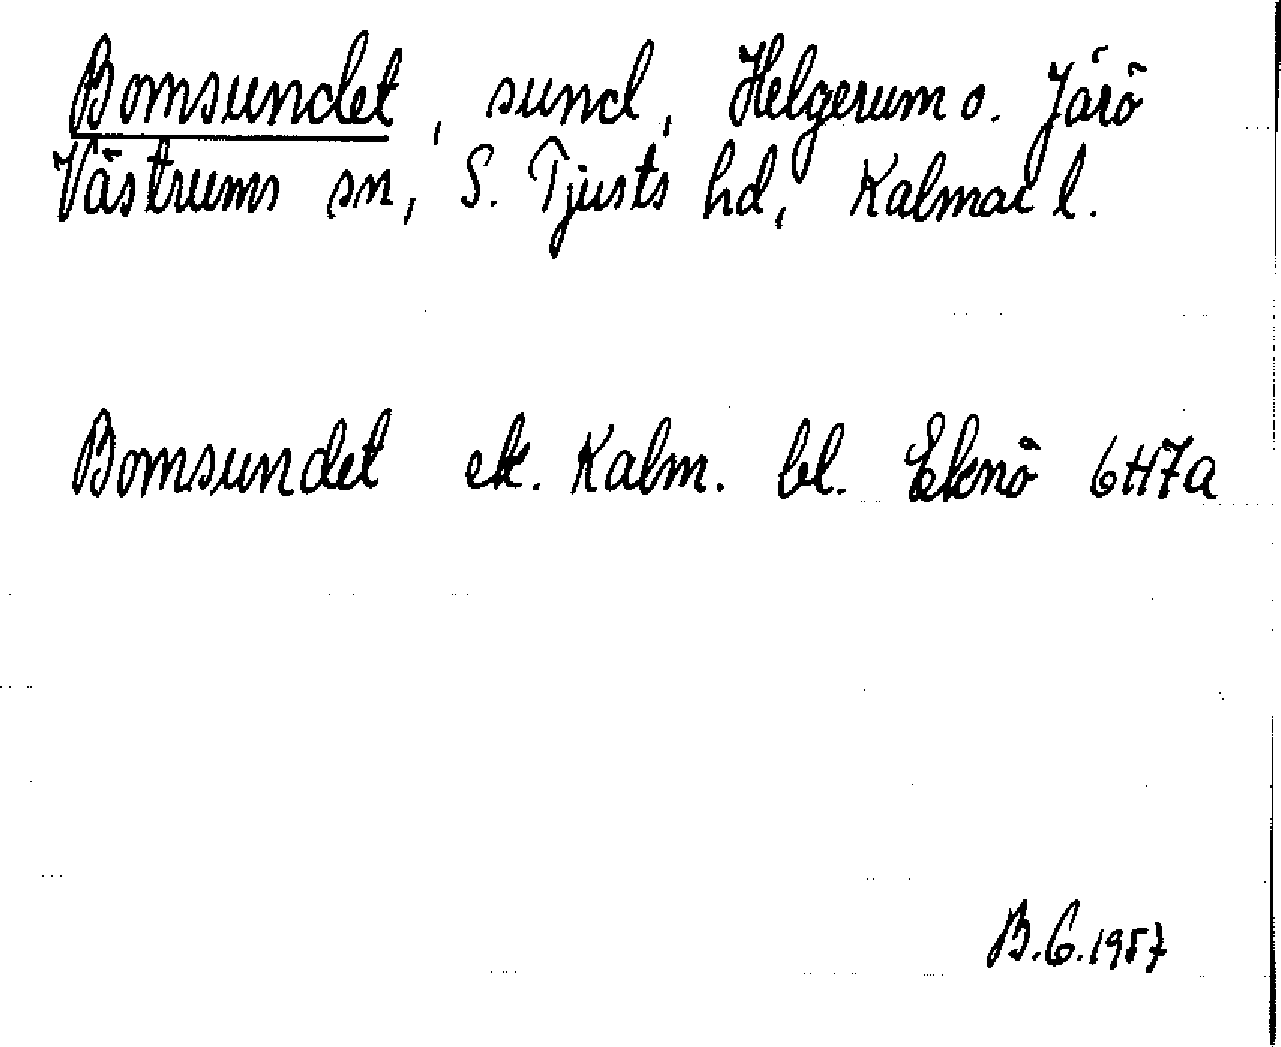 Bomsundet, sund, Helgerum o. Järö
Västrums sn, S. Tjusts hd, Kalmar l.
Bomsundet ek. Kalm. bl. Eknö 6H7a
B.G. 1957